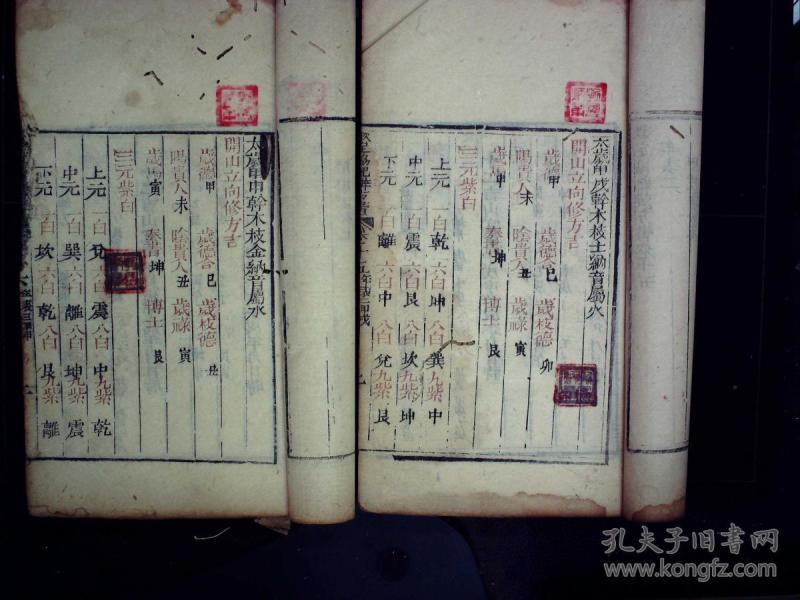 太歲甲戌幹木枝土納音屬火
開山立向修方吉
歲德甲 歲德合己 歲枝德卯
陽貴人未 陰貴人丑 歲祿寅
歲馬 奏書坤 博士艮
三元紫白
上元 一白乾 六白坤 八白巽 九紫中
中元 一白震 六白艮 八白坎 九紫坤
下元 一白離 六白中 八白兌 九紫艮
太歲甲申幹木枝金納音屬水
開山立向修方吉
歲德甲 歲德合己 歲枝德丑
陽貴人未 陰貴人丑 歲祿寅
歲馬寅 奏書坤 博士艮
三元紫白
上元 一白兌 六白震 八白中 九紫乾
中元 一白巽 六白離 八白坤 九紫震
下元 一白坎 六白乾 八白艮 九紫離
孔夫子旧书网
www.kongfz.com